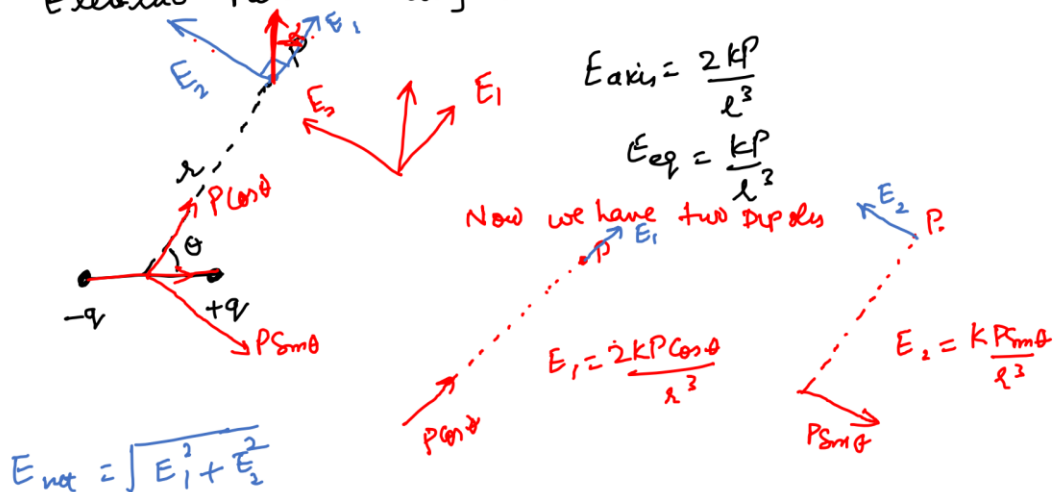 E₁
E₂
E₂
E₁
E axis = 2kP / r³
E eq = kP / r³
r
P Cosθ
θ
-q
+q
P Sinθ
Now we have two Dipoles
P
E₁
E₂
P.
E₁ = 2kP Cosθ / r³
E₂ = k P Sinθ / r³
P Cosθ
P Sinθ
E net = √(E₁² + E₂²)